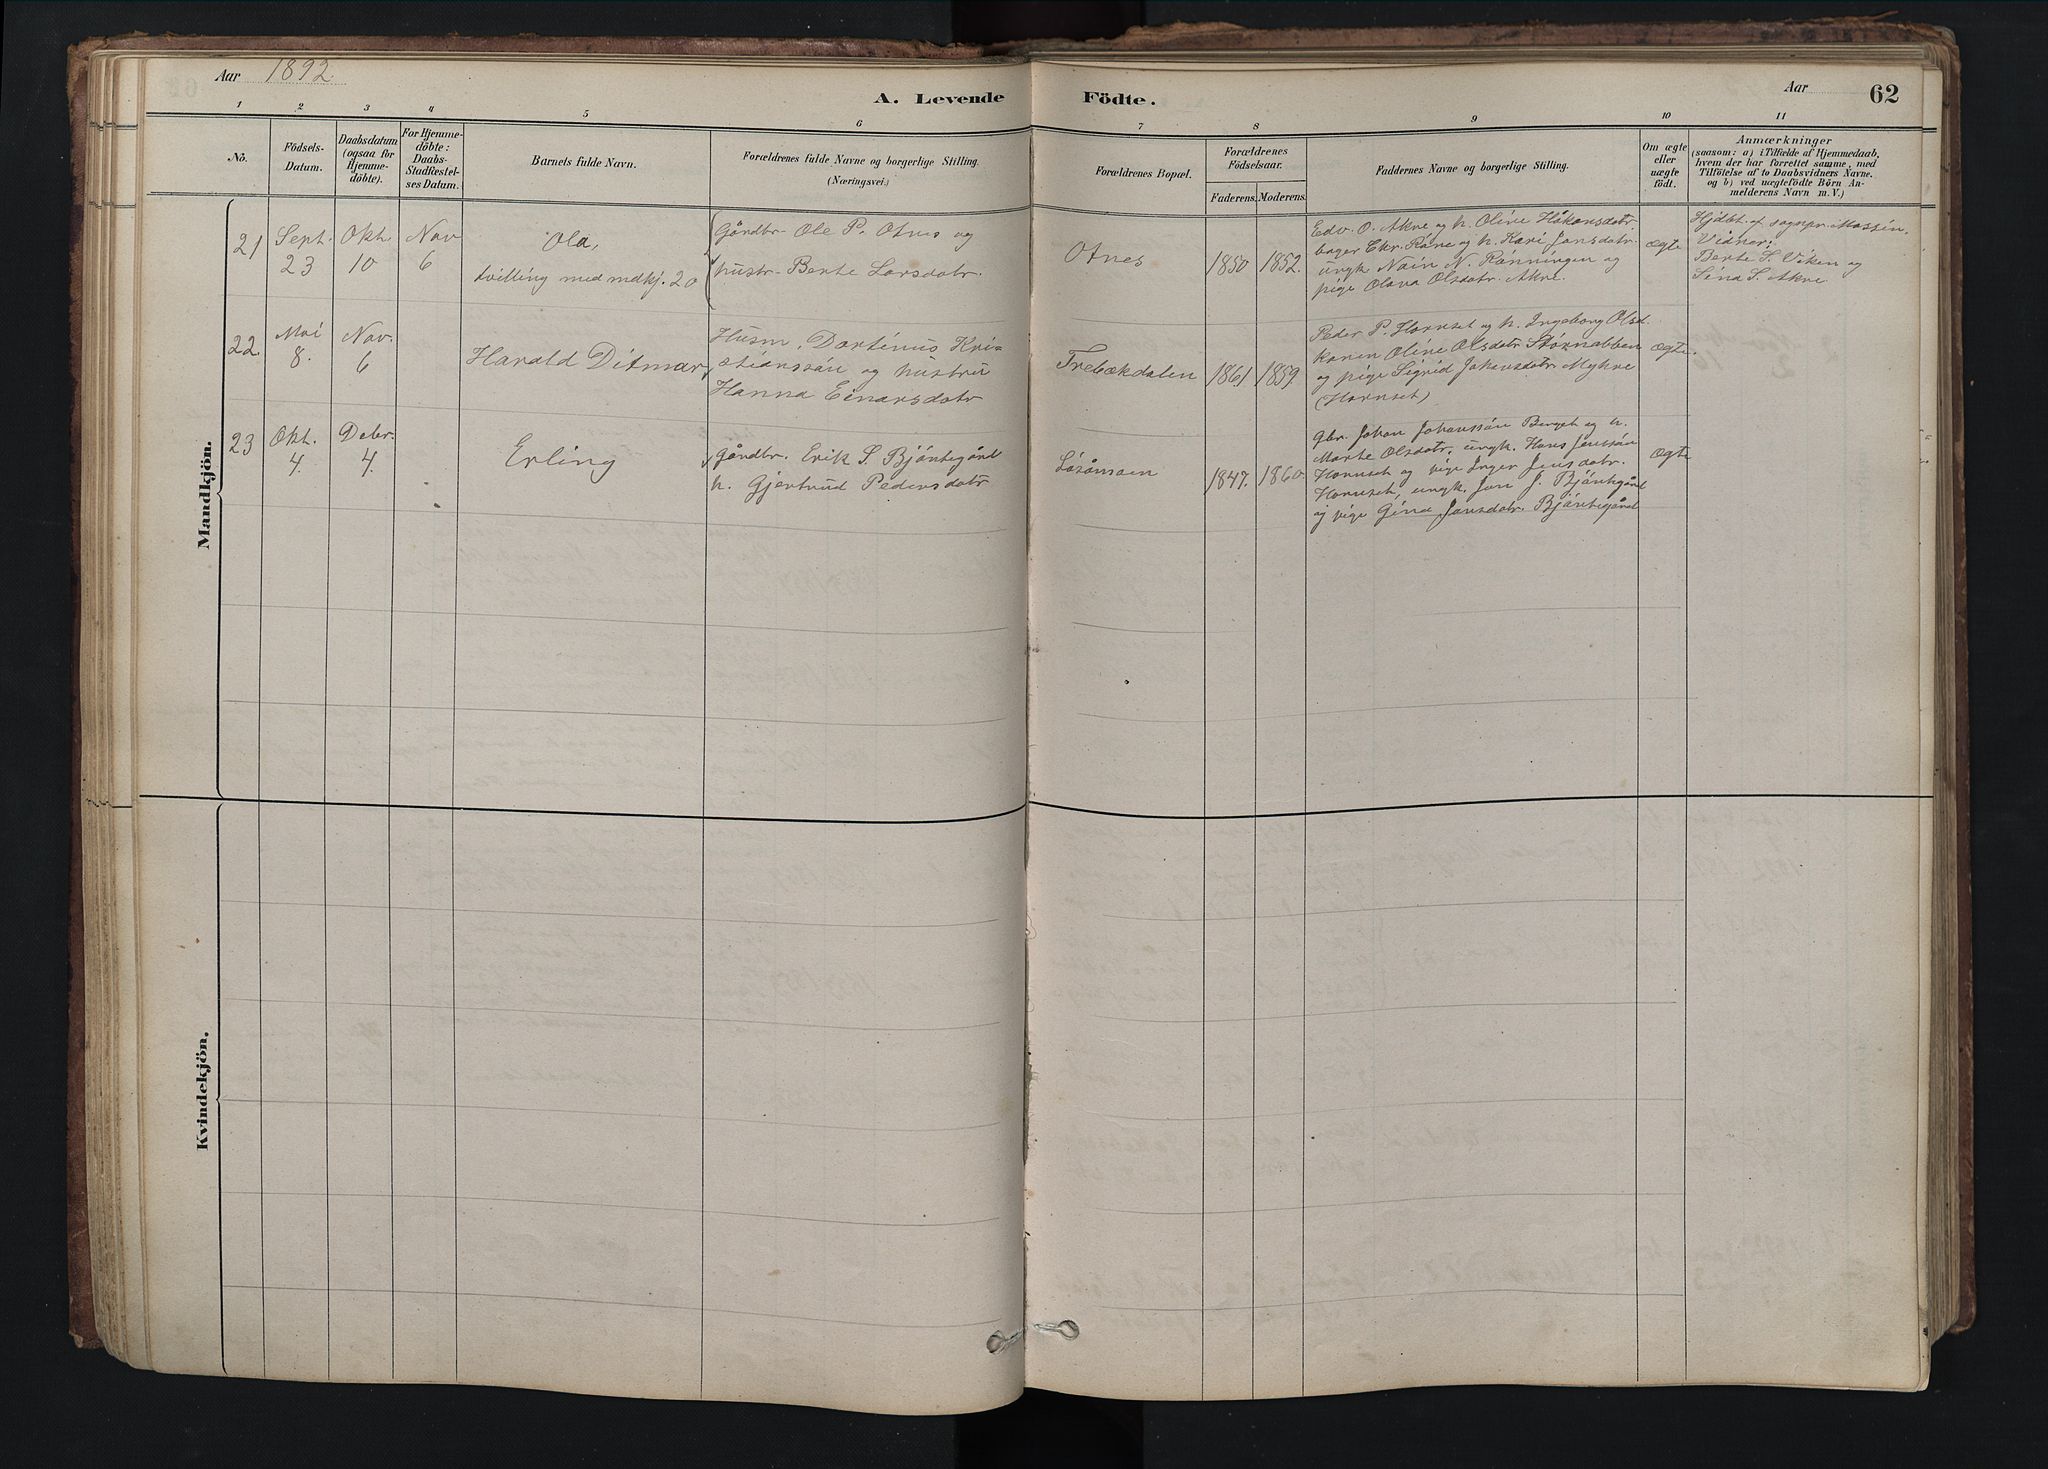 Aar 1892
A. Levende Födte.
Aar
62
1 2 3 4 5 6 7 8 9 10 11
No.
Födsels-
Datum.
Daabsdatum
(ogsaa for
Hjemme-
döbte).
For Hjemme-
döbte:
Daabs-
Stadfæstel-
ses Datum.
Barnets fulde Navn.
Forældrenes fulde Navne og borgerlige Stilling.
(Næringsvei.)
Forældrenes Bopæl.
Forældrenes
Födselsaar.
Faderens. Moderens.
Faddernes Navne og borgerlige Stilling.
Om ægte
eller
uægte
födt.
Anmærkninger
(saasom: a) i Tilfælde af Hjemmedaab,
hvem der har forrettet samme, med
Tilföielse af to Daabsvidners Navne.
og b) ved uægtefödte Börn An-
melderens Navn m. V.)
Mandkjön.
21
Sept.
23
Okt.
10
Nov
6
Ola,
tvilling med mdkj. 20
Gårdbr. Ole P. Otnes og
hustr. Berte Larsdatr.
Otnes
1850 1852.
Edv. O. Akre og h. Oline Håkonsdatr.
bager Chr. Ravne og h. Kari Jonsdatr.
ungk Nain N. Rønningen og
pige Olava Olsdatr. Akre.
ægte
Hjdbt. af sognepr. Mossin.
Vidner:
Berte S. Viken og
Sina S. Akre.
22.
Mai
8.
Nov.
6
Harald Ditmar
Husm. Dortinus Kri-
stianssön og hustru
Hanna Einarsdatr
Trebækdalen
1861 1859.
Peder P. Hornset og h. Ingeborg Olsd.
konen Oline Olsdatr. Störnabben
og pige Sigrid Johansdatr. Myhre
(Hornset)
ægte.
23
Okt.
4.
Debr.
4.
Erling
Gårdbr. Erik S. Bjöntegård
h. Gjertrud Pedersdatr
Lösåmoen
1847. 1860.
Gbr. Johan Johanssön Berget og h.
Marte Olsdatr., ungk. Hans Jenssön
Hornset og pige Inger Jensdatr.
Hornset, ungk. Jon J. Bjöntegård
og pige Gina Jonsdatr. Bjöntegård
ægte
Kvindekjön.